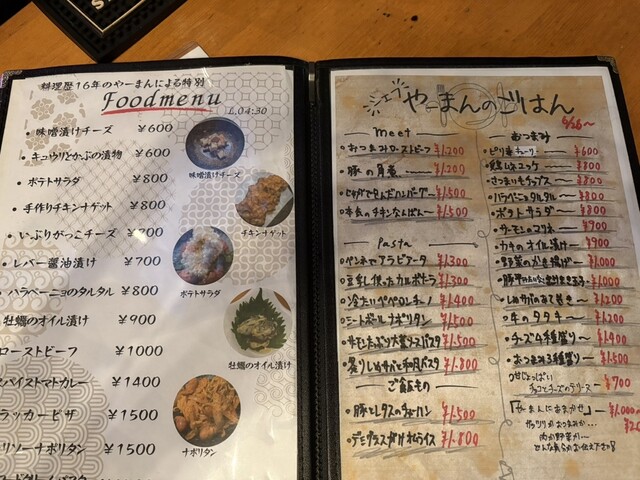 料理歴16年のやーまんによる特別
Foodmenu
L.04:30
味噌漬けチーズ ¥600
キュウリとかぶの漬物 ¥600
ポテトサラダ ¥800
手作りチキンナゲット ¥800
いぶりがっこチーズ ¥700
レバー醤油漬け ¥700
ハラペーニョのタルタル ¥800
牡蠣のオイル漬け ¥900
ローストビーフ ¥1000
パイストマトカレー ¥1400
ラッカーピザ ¥1500
リソーナポリタン ¥1500
味噌漬けチーズ
チキンナゲット
ポテトサラダ
牡蠣のオイル漬け
ナポリタン
シェフやーまんのごはん
meet
おつまみローストビーフ ¥1,200
豚の角煮 ¥1,200
¥1,500
本気のチキンなんばん ¥1,500
Pasta
ペンネでアラビアータ ¥1,300
豆乳使ったカルボナーラ ¥1,300
冷たいペペロンチーノ ¥1,400
ミートボールナポリタン ¥1,500
¥1,500
¥1,800
ご飯もの
豚とレタスのチャーハン ¥1,500
デミグラスがけオムライス ¥1,800
おつまみ
6/26〜
ピリ辛キューリ ¥600
鶏ムネユッケ ¥800
さつまいもチップス ¥800
ハラペーニョタルタル ¥800
ポテトサラダ ¥800
サーモンのマリネ ¥900
カキのオイル漬け ¥900
野菜のかき揚げ ¥1,000
¥1,000
¥1,200
牛のタタキ ¥1,200
チーズ4種盛り ¥1,400
おつまみ3種盛り ¥1,500
チョコとチーズのテリーヌ ¥700
「やーまんにおまかせ」 ¥1,000
がっつりかおつまみか…
肉か野菜か…